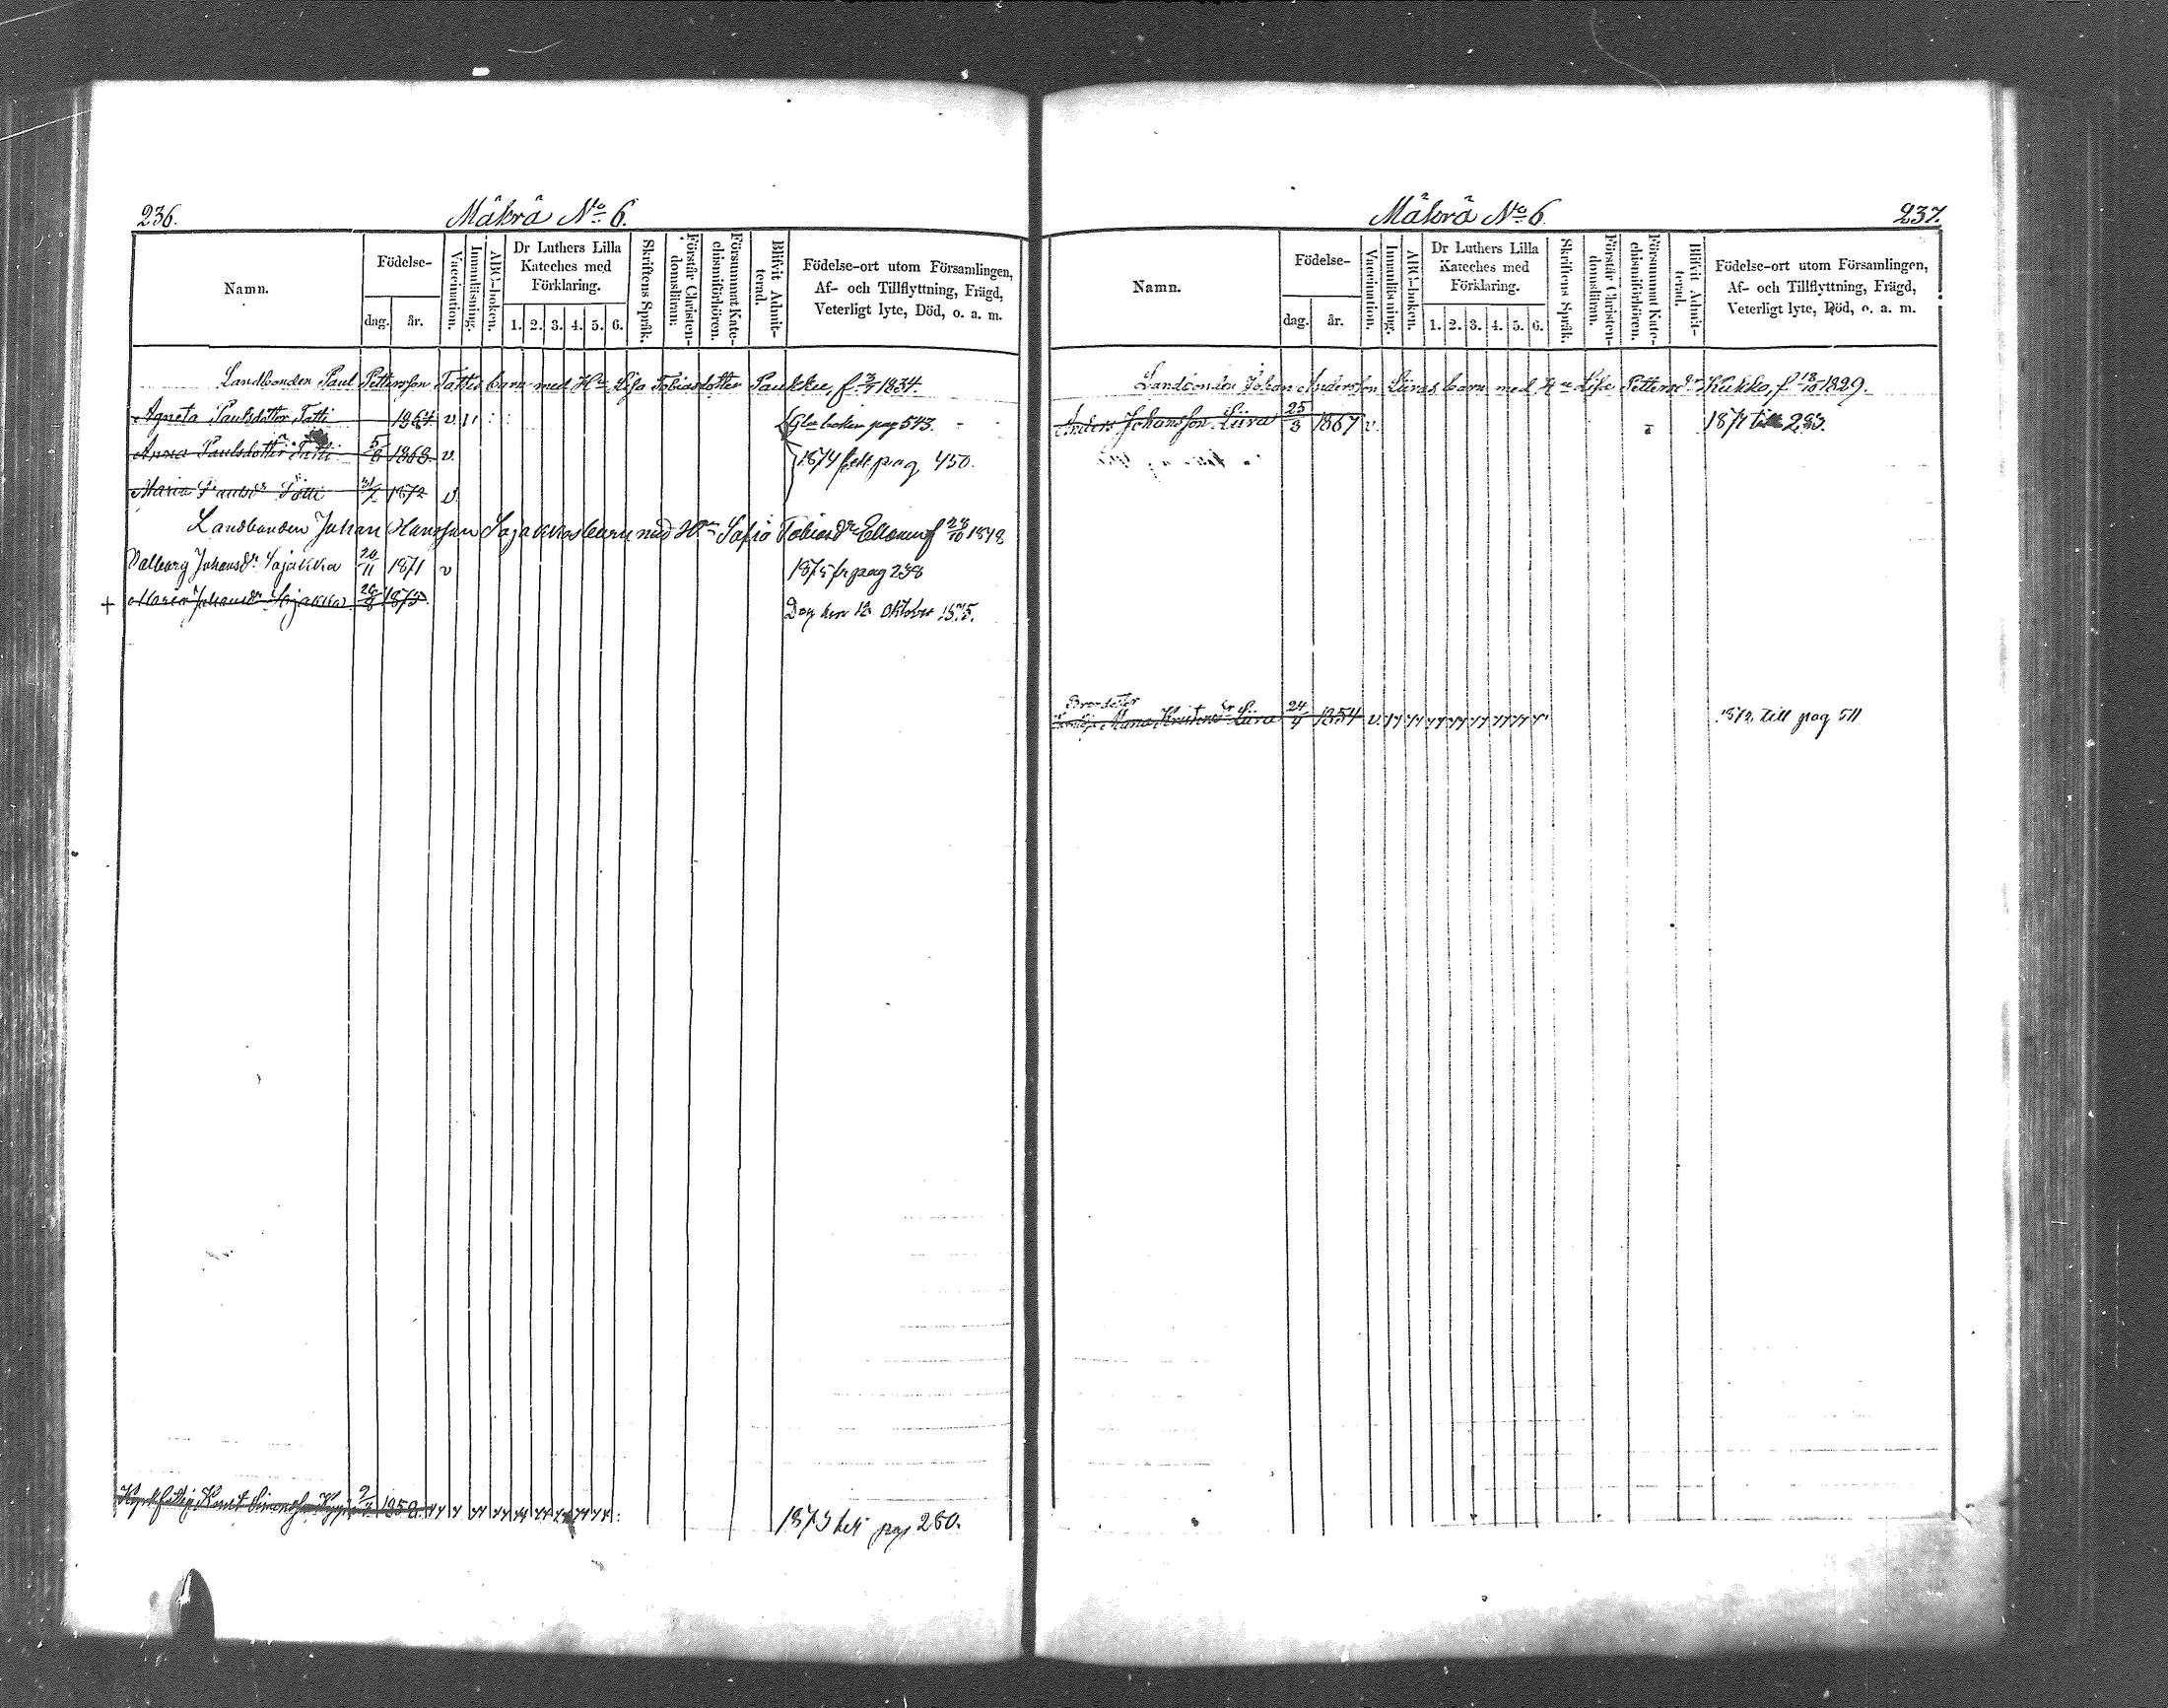 236.
Mäkrä No 6.
Namn.
Födelse-
dag.
år.
Vaccination.
Innanläsning.
ABC-boken.
Dr Luthers Lilla
Kateches med
Förklaring.
1. 2. 3. 4. 5. 6.
Skriftens Språk.
Förstår Christen-
domsläran.
Försummat Kate-
chismiförhören.
Blifvit Admit-
terad.
Födelse-ort utom Församlingen,
Af- och Tillflyttning, Frägd,
Veterligt lyte, Död, o. a. m.
Landbonden Paul Pettersson Tattis barn med Hu Lisa Tobiasdotter Paukku f. 3/5 1834.
Agneta Paulsdotter Tatti 1864 v Gla boken pag 543.
Anna Paulsdotter Tatti 5/8 1868. v. 1874 till pag 450.
Maria Paulsdr Totti 1872 v.
Landbonden Johan Hansson Sajakkas barn med Hu Sofia Tobiasdr f 28/10 1848
Valborg Johansdr Sajakka 20/11 1871 v 1875 fr pag 238
+ Maria Johansdr Sajakka 1875. Dog den 12 Oktober 1875.
Simonss 1850. 1873 till pag 280.
Mäkrä No 6.
237.
Namn.
Födelse-
dag.
år.
Vaccination.
Innanläsning.
ABC-boken.
Dr Luthers Lilla
Kateches med
Förklaring.
1. 2. 3. 4. 5. 6.
Skriftens Språk.
Förstår Christen-
domsläran.
Försummat Kate-
chismiförhören.
Blifvit Admit-
terad.
Födelse-ort utom Församlingen,
Af- och Tillflyttning, Frägd,
Veterligt lyte, Död, o. a. m.
Landbonden Johan Andersson Liiras barn med Hu Lisa Pettersdr Kukko, f. 18/10 1829.
Anders Johansson Liira 25/3 1867 v. 1871 till 283.
Brorsdotter
Kristersdr Liira 24/4 1854 v. 1872 till pag 511